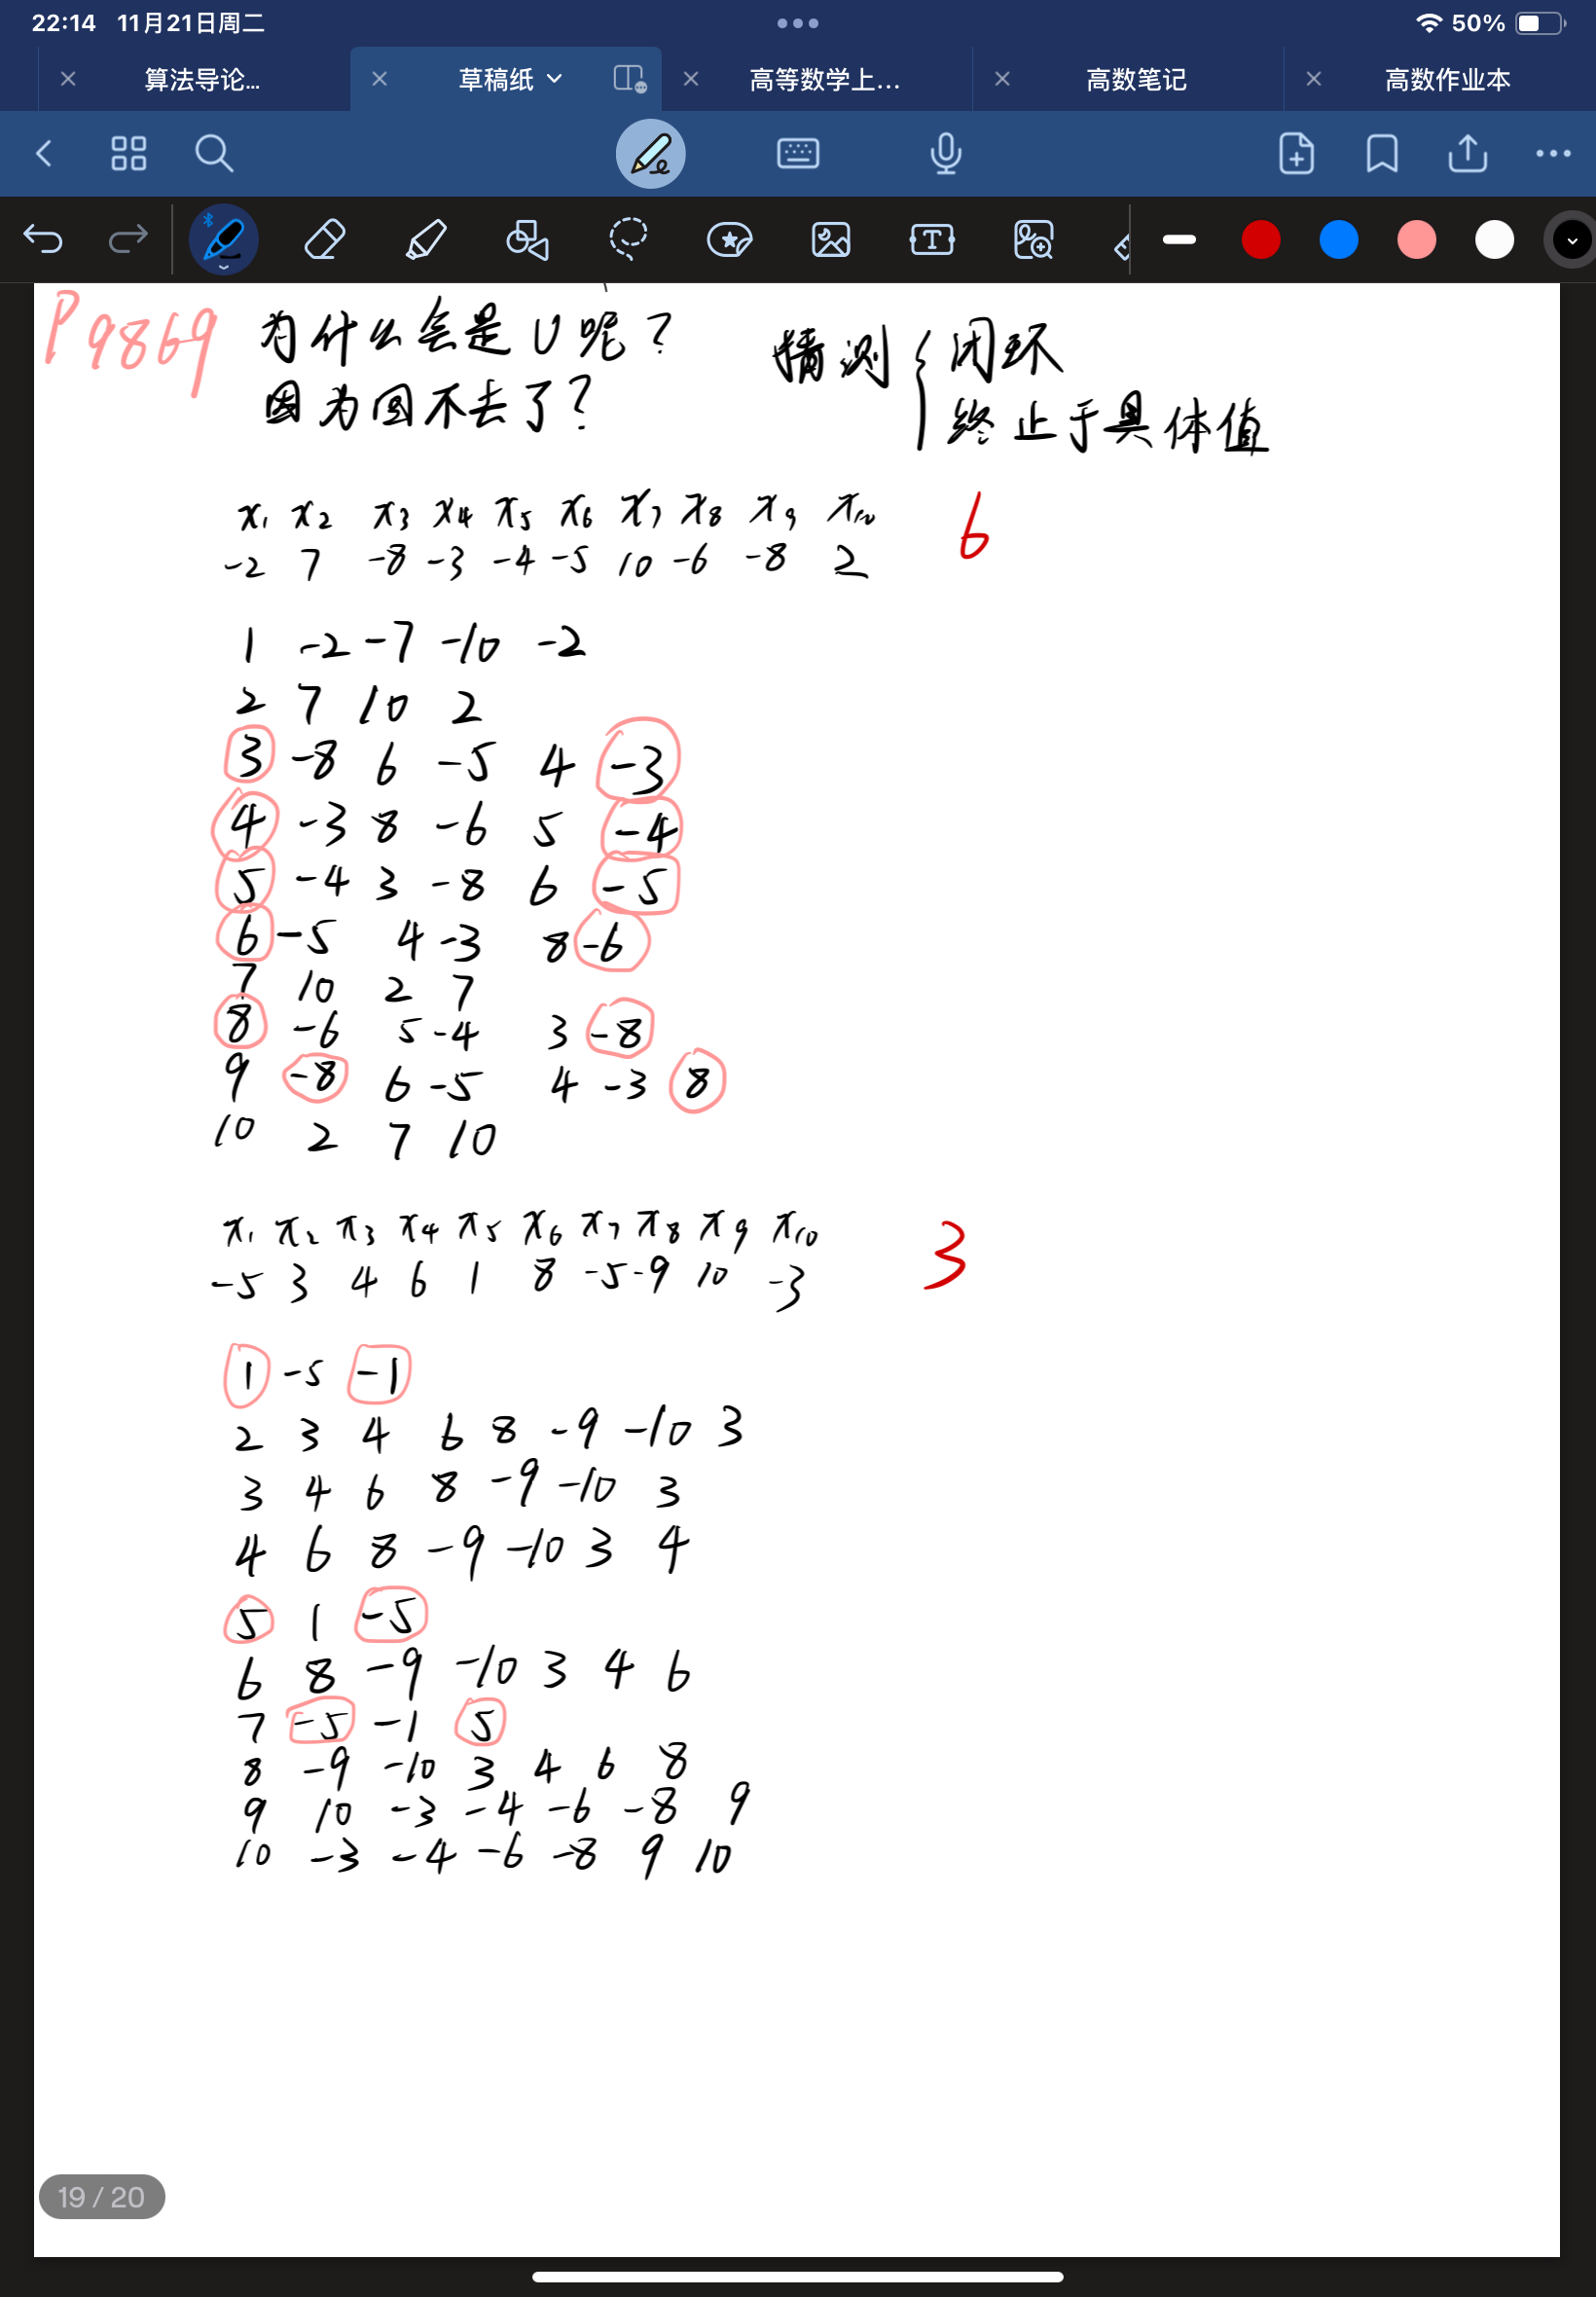 22:14 11月21日周二
50%
算法导论...
草稿纸
高等数学上...
高数笔记
高数作业本
P9869 为什么会是U呢?
因为回不去了?
猜测 { 闭环
终止于具体值
x1 x2 x3 x4 x5 x6 x7 x8 x9 x10
-2 7 -8 -3 -4 -5 10 -6 -8 2
6
1 -2 -7 -10 -2
2 7 10 2
3 -8 6 -5 4 -3
4 -3 8 -6 5 -4
5 -4 3 -8 6 -5
6 -5 4 -3 8 -6
7 10 2 7
8 -6 5 -4 3 -8
9 -8 6 -5 4 -3 8
10 2 7 10
x1 x2 x3 x4 x5 x6 x7 x8 x9 x10
-5 3 4 6 1 8 -5 -9 10 -3
3
1 -5 -1
2 3 4 6 8 -9 -10 3
3 4 6 8 -9 -10 3
4 6 8 -9 -10 3 4
5 1 -5
6 8 -9 -10 3 4 6
7 -5 -1 5
8 -9 -10 3 4 6 8
9 10 -3 -4 -6 -8 9
10 -3 -4 -6 -8 9 10
19 / 20